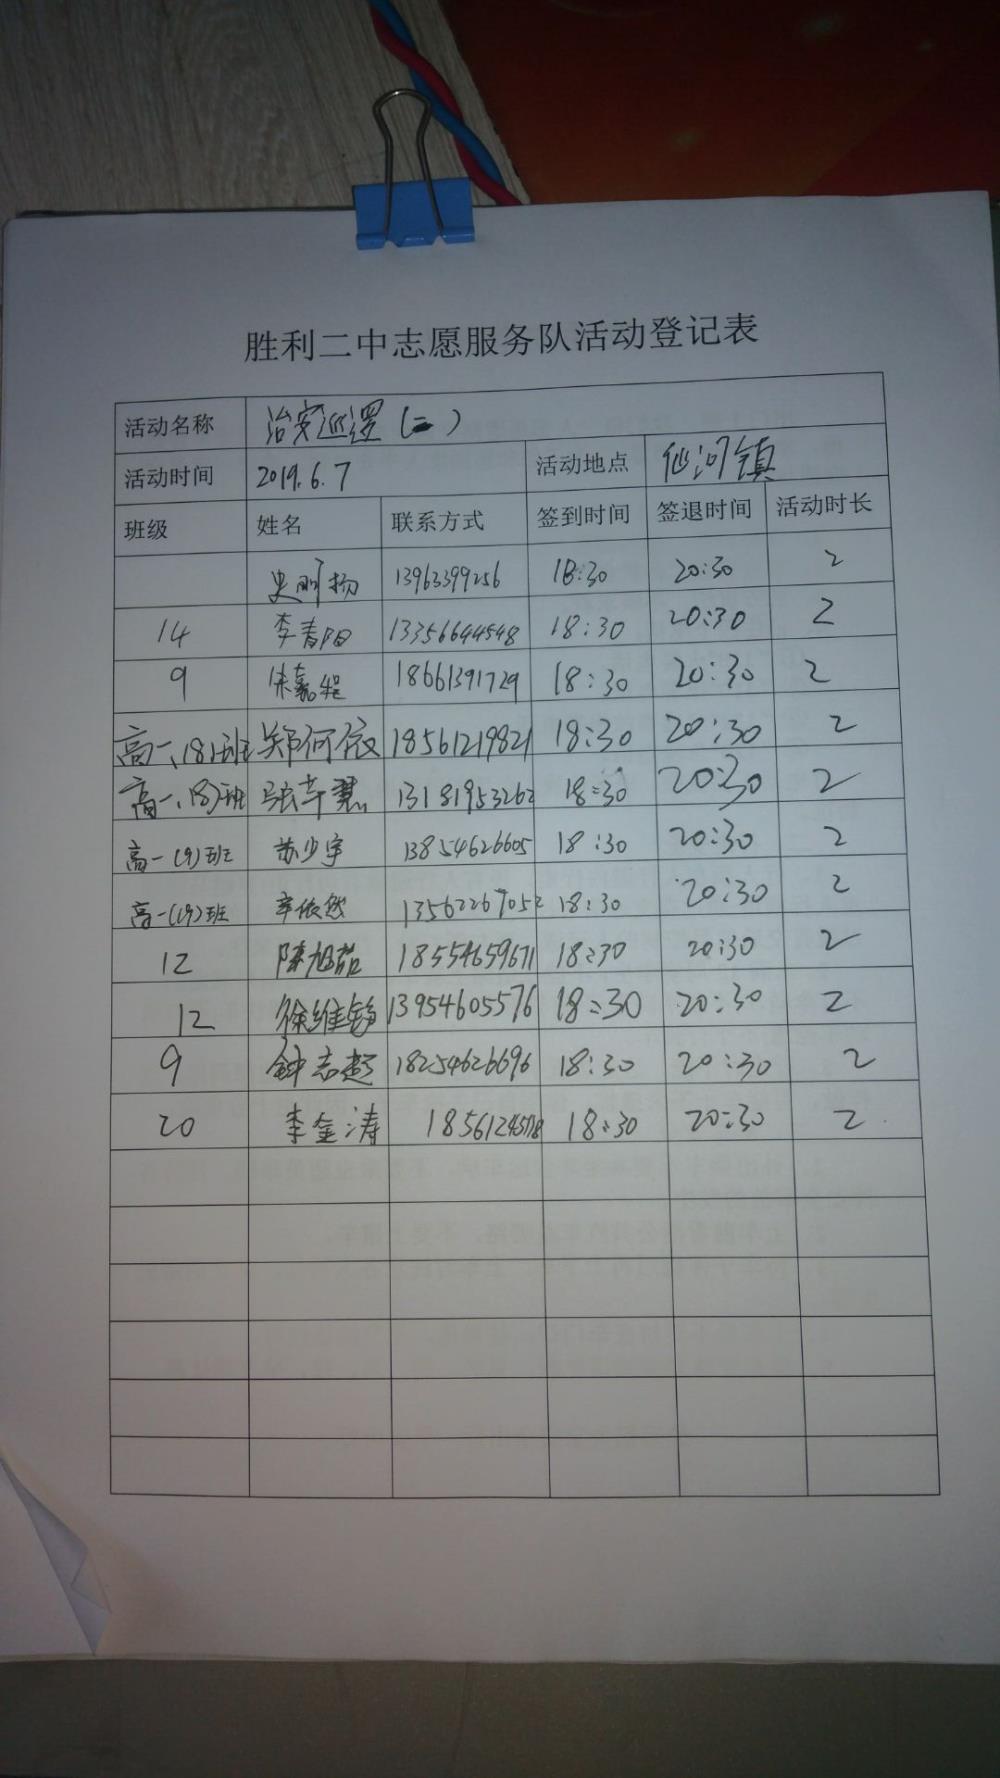 胜利二中志愿服务队活动登记表
活动名称 治安巡逻(二)
活动时间 2019.6.7 活动地点 仙河镇
班级 姓名 联系方式 签到时间 签退时间 活动时长
史明扬 13963399256 18:30 20:30 2
14 李春阳 13356644548 18:30 20:30 2
9 宋嘉程 18661391729 18:30 20:30 2
高一、(8)班 郑何依 18561219821 18:30 20:30 2
高一、(8)班 张幸慧 13181953262 18:30 20:30 2
高一(9)班 苏少宇 13854626605 18:30 20:30 2
高一(19)班 辛依然 13562267052 18:30 20:30 2
12 陈旭茹 18554659671 18:30 20:30 2
12 徐维 13954605576 18:30 20:30 2
9 钟志超 18254626696 18:30 20:30 2
20 李金涛 18:30 20:30 2